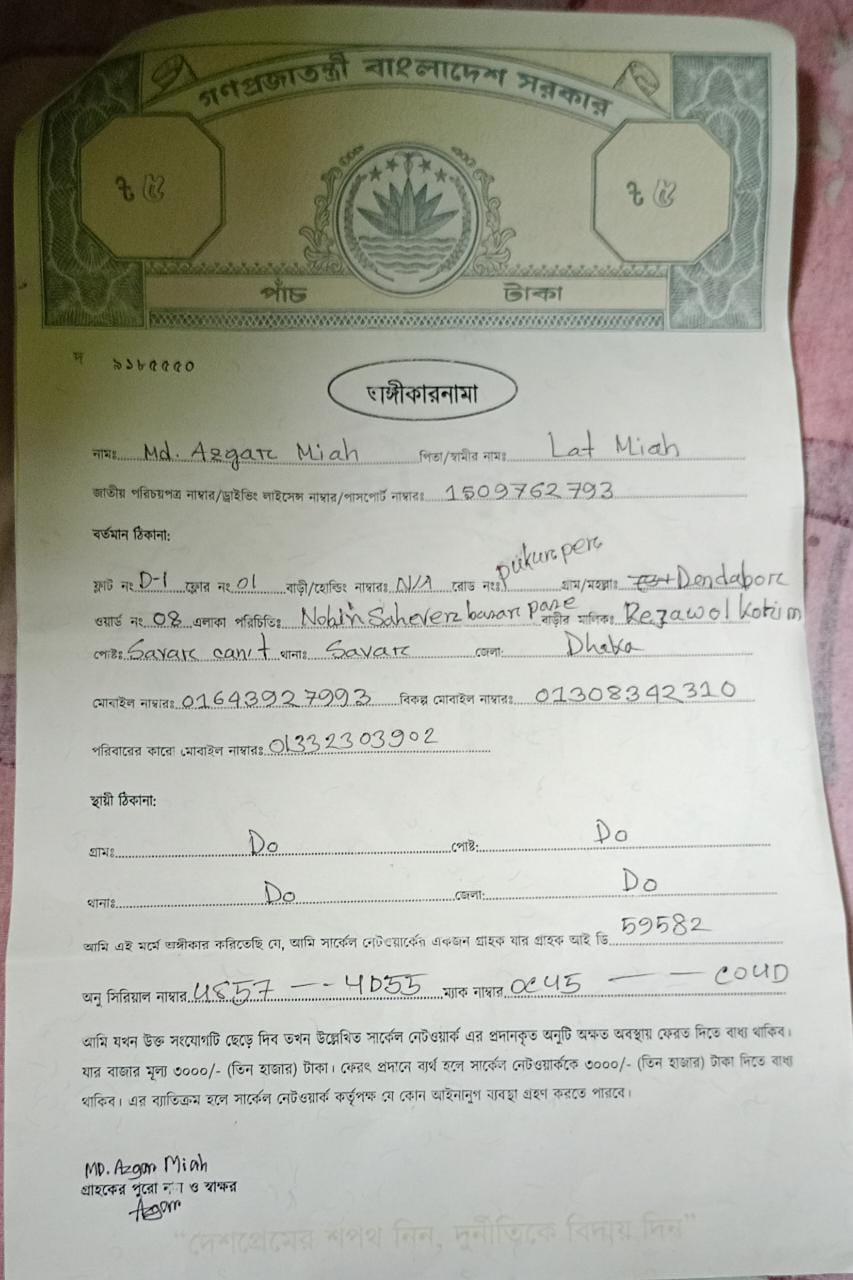 গণপ্রজাতন্ত্রী বাংলাদেশ সরকার
৳ ৫ ৳ ৫
পাঁচ টাকা
দ ৯১৮৫৫৫০
অঙ্গীকারনামা
নামঃ Md. Azgar Miah পিতা/স্বামীর নামঃ Lat Miah
জাতীয় পরিচয়পত্র নাম্বার/ড্রাইভিং লাইসেন্স নাম্বার/পাসপোর্ট নাম্বারঃ 1509762793
বর্তমান ঠিকানা:
ফ্লাট নং D-1 ফ্লোর নং 01 বাড়ী/হোল্ডিং নাম্বারঃ N/A রোড নংঃ pukurpere গ্রাম/মহল্লাঃ Dendabor
ওয়ার্ড নং 08 এলাকা পরিচিতিঃ Nobin Sahever bazar pare বাড়ীর মালিকঃ Rezawol Korim
পোষ্টঃ Savar cant থানাঃ Savar জেলা: Dhaka
মোবাইল নাম্বারঃ 01643927993 বিকল্প মোবাইল নাম্বারঃ 01308342310
পরিবারের কারো মোবাইল নাম্বারঃ 01332303902
স্থায়ী ঠিকানা:
গ্রামঃ Do পোষ্ট: Do
থানাঃ Do জেলা: Do
আমি এই মর্মে অঙ্গীকার করিতেছি যে, আমি সার্কেল নেটওয়ার্কের একজন গ্রাহক যার গ্রাহক আই ডি 59582
অনু সিরিয়াল নাম্বার 4857 -- 4D55 ম্যাক নাম্বার 0C45 — — C04D
আমি যখন উক্ত সংযোগটি ছেড়ে দিব তখন উল্লেখিত সার্কেল নেটওয়ার্ক এর প্রদানকৃত অনুটি অক্ষত অবস্থায় ফেরত দিতে বাধ্য থাকিব।
যার বাজার মূল্য ৩০০০/- (তিন হাজার) টাকা। ফেরৎ প্রদানে ব্যর্থ হলে সার্কেল নেটওয়ার্ককে ৩০০০/- (তিন হাজার) টাকা দিতে বাধ্য
থাকিব। এর ব্যতিক্রম হলে সার্কেল নেটওয়ার্ক কর্তৃপক্ষ যে কোন আইনানুগ ব্যবস্থা গ্রহণ করতে পারবে।
MD. Azgar Miah
গ্রাহকের পুরো নাম ও স্বাক্ষর
Azgar
"দেশপ্রেমের শপথ নিন, দুর্নীতিকে বিদায় দিন"